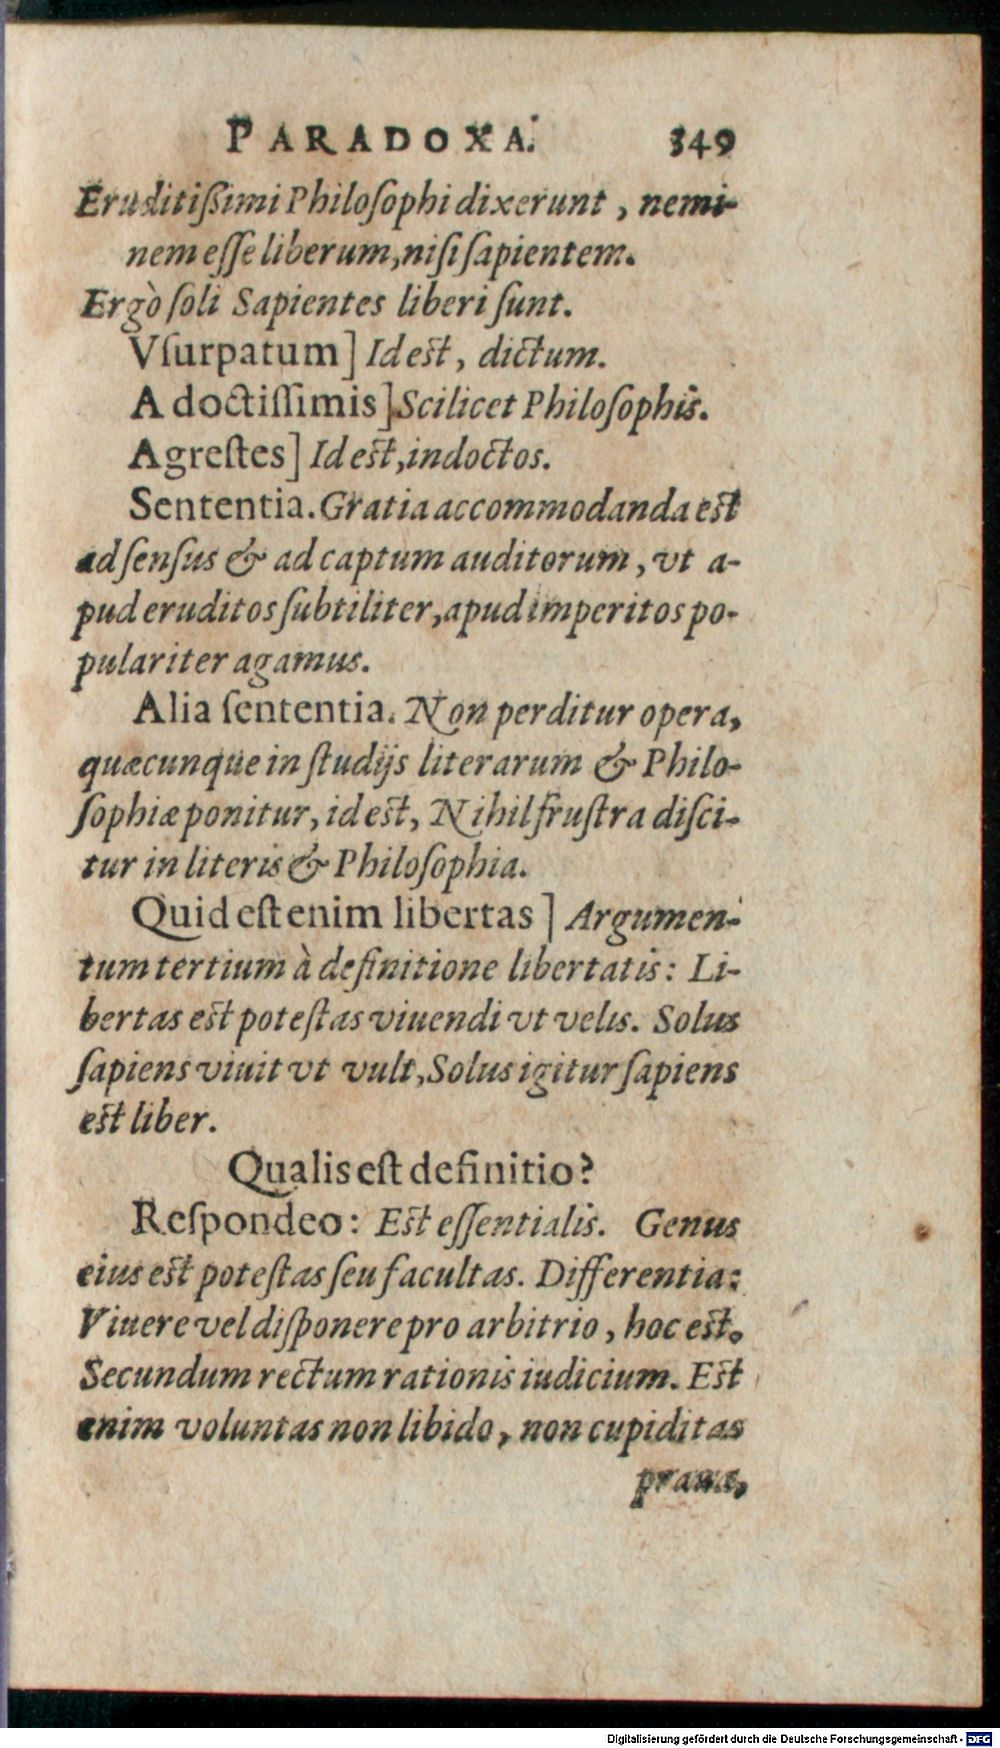 PARADOXA. 349
Eruditiſſimi Philoſophi dixerunt, nemi-
nem eſſe liberum, niſi ſapientem.
Ergò ſoli Sapientes liberi ſunt.
Vſurpatum] Id eſt, dictum.
A doctiſſimis] Scilicet Philoſophis.
Agreſtes] Id eſt, indoctos.
Sententia. Gratia accommodanda eſt
ad ſenſus & ad captum auditorum, vt a-
pud eruditos ſubtiliter, apud imperitos po-
pulariter agamus.
Alia ſententia. Non perditur opera,
quæcunque in ſtudijs literarum & Philo-
ſophiæ ponitur, id eſt, Nihil fruſtra diſci-
tur in literis & Philoſophia.
Quid eſt enim libertas] Argumen-
tum tertium à definitione libertatis: Li-
bertas eſt poteſtas viuendi vt velis. Solus
ſapiens viuit vt vult, Solus igitur ſapiens
eſt liber.
Qualis eſt definitio?
Reſpondeo: Eſt eſſentialis. Genus
eius eſt poteſtas ſeu facultas. Differentia:
Viuere vel diſponere pro arbitrio, hoc eſt.
Secundum rectum rationis iudicium. Eſt
enim voluntas non libido, non cupiditas
praua,
Digitalisierung gefördert durch die Deutsche Forschungsgemeinschaft - DFG